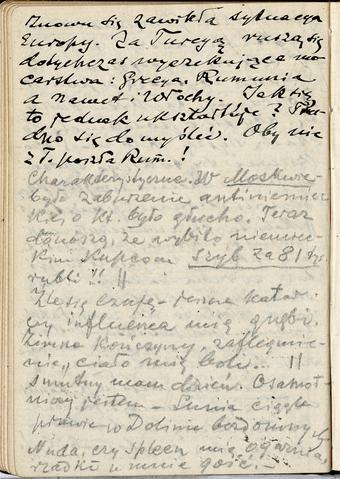 Znowu się zawikła sytuacya
Europy. Za Turcyą ruszą się
dotychczas wyczekujące mo-
carstwa: Grecya, Rumunia
a nawet i Włochy. Jak się
to jednak ukształtuje? Tru-
dno się domyśleć. Oby nie
z T. poszła Rum.!
Charakterystyczne. W Moskwie
było zaburzenie antiniemiec-
kie, o kt. było głucho. Teraz
donoszą, że wybito niemiec-
kim kupcom szyb za 81 tys.
rubli!! ||
Źle się czuję – pewno katar
czy influenca mię gnębi.
Zimno kończyny, zaflegmie-
nie, ciało mię boli... ||
Smutny mam dzień. Osamot-
niony jestem – Lunia ciągle
prawie w Dolinie bezdomnych
Nuda, czy spleen mię ogarnia
rzadki u mnie gość. –